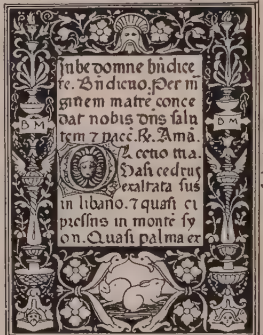 Jube domne bñdice
re. Bñdictio. Per vi
ginem matrē conce
dat nobis dñs salu
tem ⁊ pacē. ℟. Amē.
Lectio
Quasi cedrus
exaltata sus
in libano. ⁊ quasi ci
pressus in monte sy
on. Quasi palma ex
B M
B M